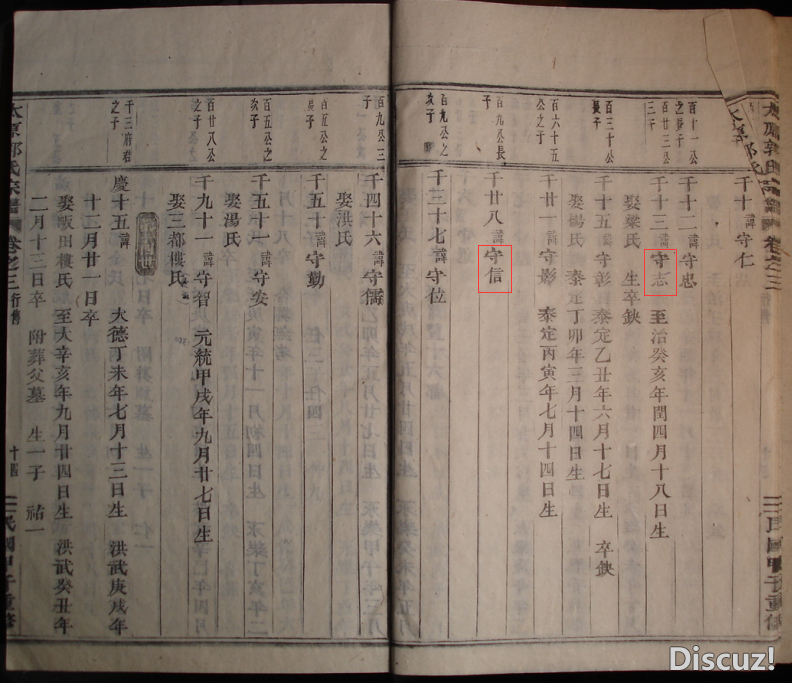 太原郭氏宗譜 卷之三 行傳
民國甲子重修
千十 諱守仁
百十一公之長子
千十二 諱守忠
百廿三公三子
千十三 諱守志 至治癸亥年閏四月十八日生
娶梁氏 生卒缺
千十五 諱守彰 泰定乙丑年六月十七日生 卒缺
娶楊氏 泰定丁卯年三月十四日生
百六十五公之子
千廿一 諱守影 泰定丙寅年七月十四日生
百九公長子
千廿八 諱守信
百九公之次子
千三十七 諱守位
百九公三子
千四十六 諱守儒
娶洪氏
千五十 諱守勤
百五公之次子
千五十一 諱守安
娶湯氏
百廿八公之子
千九十一 諱守智 元統甲戌年九月廿七日生
娶三都樓氏
千三府君之子
慶十五 諱 大德丁未年七月十三日生 洪武庚戌年
十二月廿一日卒
娶畈田樓氏 至大辛亥年九月廿四日生 洪武癸丑年
二月十三日卒 附葬父墓 生一子 祐一
太原郭氏宗譜 卷之三 行傳 十四
民國甲子重修
Discuz!